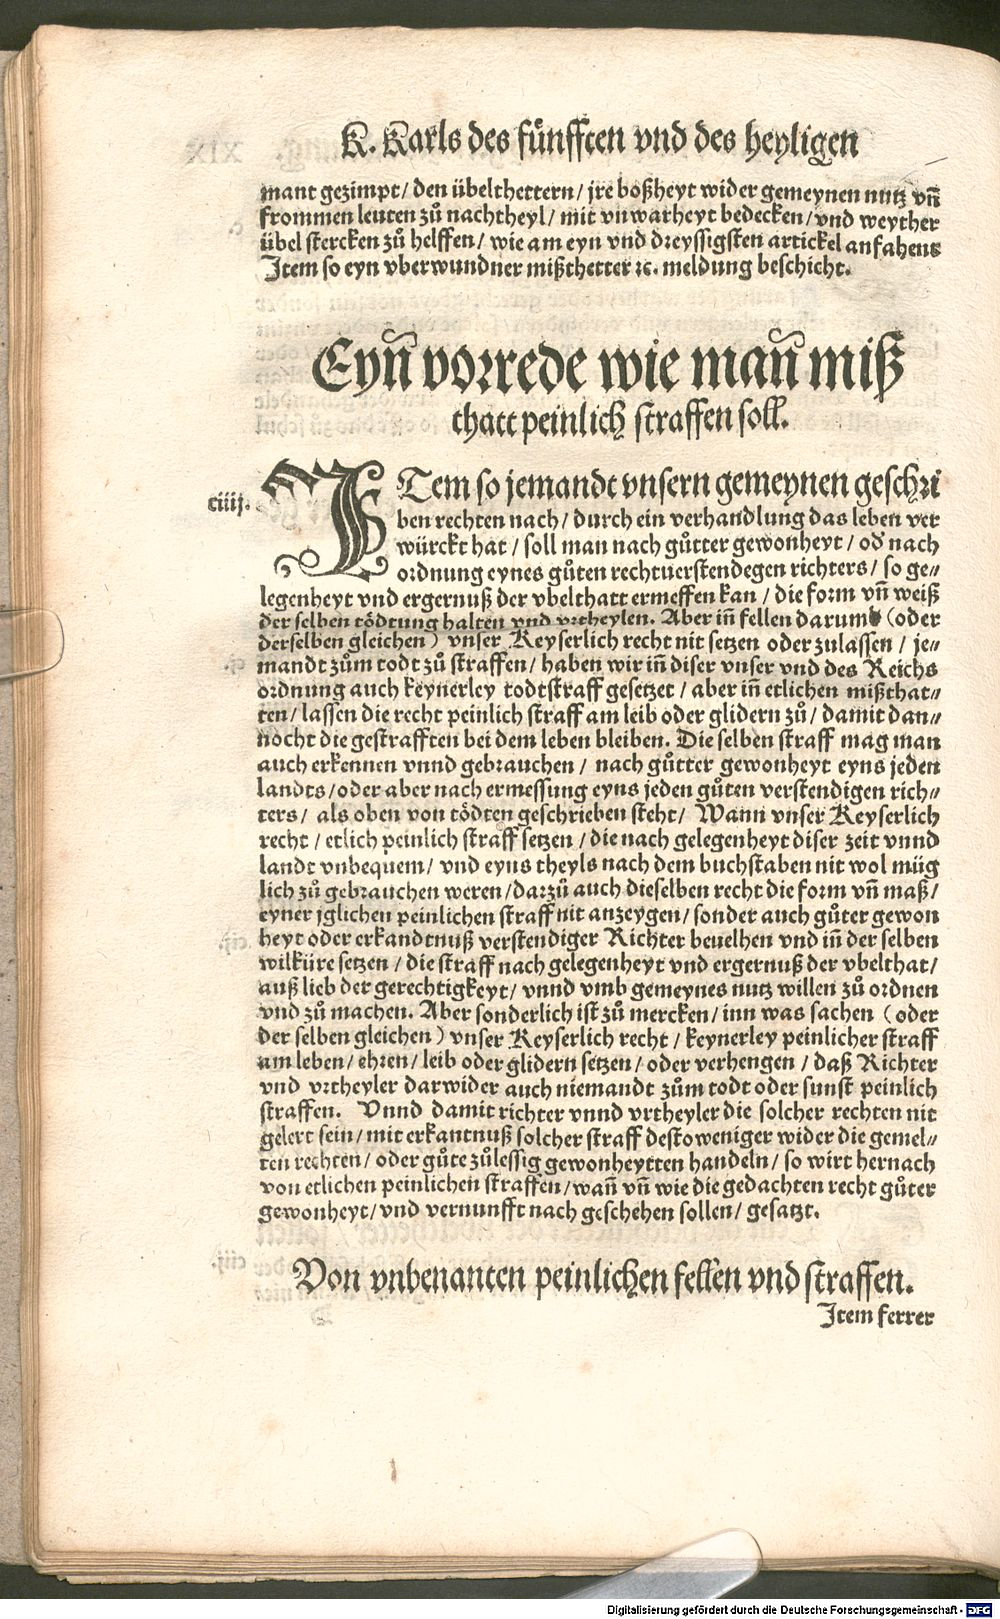 K. Karls des fünfften vnd des heyligen
mant gezimpt/ den übelthettern/ jre boßheyt wider gemeynen nutz vñ
frommen leuten zů nachtheyl/ mit vnwarheyt bedecken/ vnd weyther
übel stercken zů helffen/ wie am eyn vnd dreyssigsten artickel anfahens
Item so eyn vberwundner mißthetter ꝛc. meldung beschicht.
Eyñ vorrede wie mañ miß
thatt peinlich straffen soll.
ciiij.
ITem so jemandt vnsern gemeynen geschri
ben rechten nach/ durch ein verhandlung das leben ver
würckt hat/ soll man nach gůtter gewonheyt/ oď nach
ordnung eynes gůten rechtuerstendegen richters/ so ge⸗
legenheyt vnd ergernuß der vbelthatt ermessen kan/ die form vñ weiß
der selben tödtung halten vnd vrtheylen. Aber iñ fellen darumb (oder
derselben gleichen) vnser Keyserlich recht nit setzen oder zulassen/ je⸗
mandt zům todt zů straffen/ haben wir iñ diser vnser vnd des Reichs
ordnung auch keynerley todtstraff gesetzet/ aber iñ etlichen mißthat⸗
ten/ lassen die recht peinlich straff am leib oder glidern zů/ damit dan⸗
nocht die gestrafften bei dem leben bleiben. Die selben straff mag man
auch erkennen vnnd gebrauchen/ nach gůtter gewonheyt eyns jeden
landts/ oder aber nach ermessung eyns jeden gůten verstendigen rich⸗
ters/ als oben von tödten geschrieben steht/ Wann vnser Keyserlich
recht/ etlich peinlich straff setzen/ die nach gelegenheyt diser zeit vnnd
landt vnbequem/ vnd eyns theyls nach dem buchstaben nit wol müg
lich zů gebrauchen weren/ darzů auch dieselben recht die form vñ maß/
eyner jglichen peinlichen straff nit anzeygen/ sonder auch gůter gewon
heyt oder erkandtnuß verstendiger Richter beuelhen vnd iñ der selben
wilküre setzen/ die straff nach gelegenheyt vnd ergernuß der vbelthat/
auß lieb der gerechtigkeyt/ vnnd vmb gemeynes nutz willen zů ordnen
vnd zů machen. Aber sonderlich ist zů mercken/ inn was sachen (oder
der selben gleichen) vnser Keyserlich recht/ keynerley peinlicher straff
am leben/ ehren/ leib oder glidern setzen/ oder verhengen/ daß Richter
vnd vrtheyler darwider auch niemandt zům todt oder sunst peinlich
straffen. Vnnd damit richter vnnd vrtheyler die solcher rechten nit
gelert sein/ mit erkantnuß solcher straff destoweniger wider die gemel⸗
ten rechten/ oder gůte zůlessig gewonheytten handeln/ so wirt hernach
von etlichen peinlichen straffen/ wañ vñ wie die gedachten recht gůter
gewonheyt/ vnd vernunfft nach geschehen sollen/ gesatzt.
Von vnbenanten peinlichen fellen vnd straffen.
Item ferrer
Digitalisierung gefördert durch die Deutsche Forschungsgemeinschaft - DFG